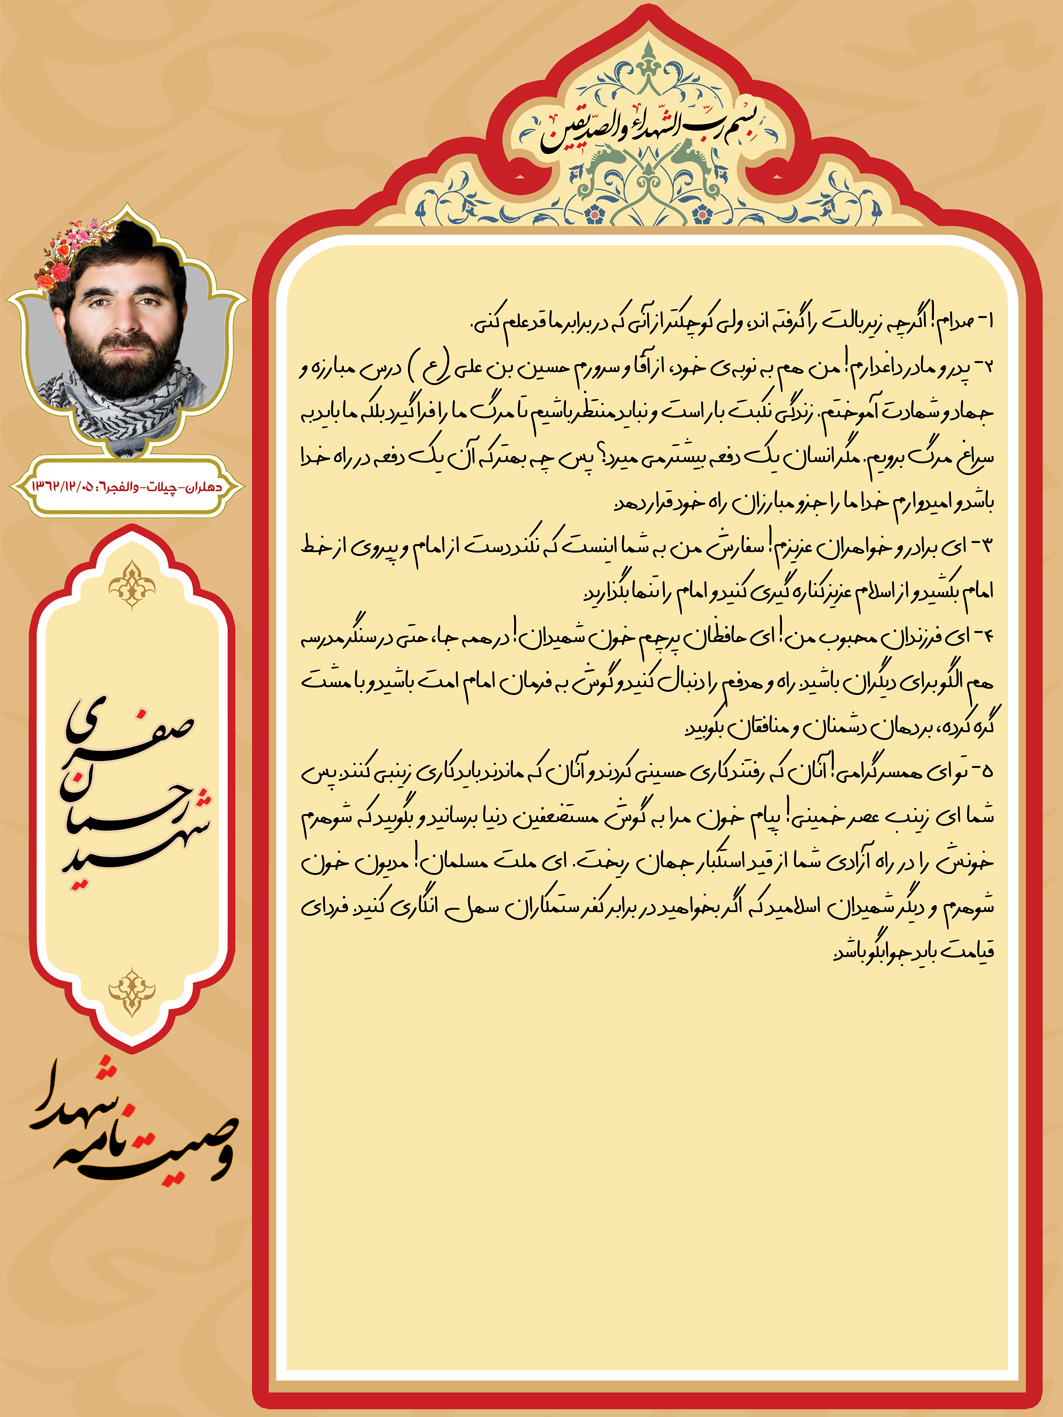 بسم ربّ الشّهداء والصّدیقین
۱- صدام! اگرچه زیر بالت را گرفته اند، ولی کوچکتر از آنی که در برابر ما قد علم کنی.
۲- پدر و مادر داغدارم! من هم به نوبه‌ی خود، از آقا و سرورم حسین بن علی (ع) درس مبارزه و
جهاد و شهادت آموختم. زندگی نکبت بار است و نباید منتظر باشیم تا مرگ ما را فرا گیرد بلکه ما باید به
سراغ مرگ برویم. مگر انسان یک دفعه بیشتر می میرد؟ پس چه بهتر که آن یک دفعه در راه خدا
باشد و امیدوارم خدا ما را جزو مبارزان راه خود قرار دهد.
۳- ای برادر و خواهران عزیزم! سفارش من به شما اینست که نکند دست از امام و پیروی از خط
امام بکشید و از اسلام عزیز کناره گیری کنید و امام را تنها بگذارید.
۴- ای فرزندان محبوب من! ای حافظان پرچم خون شهیدان! در همه جا، حتی در سنگر مدرسه
هم الگو برای دیگران باشید. راه و هدفم را دنبال کنید و گوش به فرمان امام امت باشید و با مشت
گره کرده، بر دهان دشمنان و منافقان بکوبید.
۵- تو ای همسر گرامی! آنان که رفتند کاری حسینی کردند و آنان که ماندند باید کاری زینبی کنند. پس
شما ای زینب عصر خمینی! پیام خون مرا به گوش مستضعفین دنیا برسانید و بگویید که شوهرم
خونش را در راه آزادی شما از قید استکبار جهان ریخت. ای ملت مسلمان! مدیون خون
شوهرم و دیگر شهیدان اسلامید که اگر بخواهید در برابر کفر ستمکاران سهل انگاری کنید. فردای
قیامت باید جوابگو باشد.
دهلران-چیلات-والفجر۶: ۱۳۶۲/۱۲/۰۵
شهید
رحمان
صفری
وصیت نامه شهدا